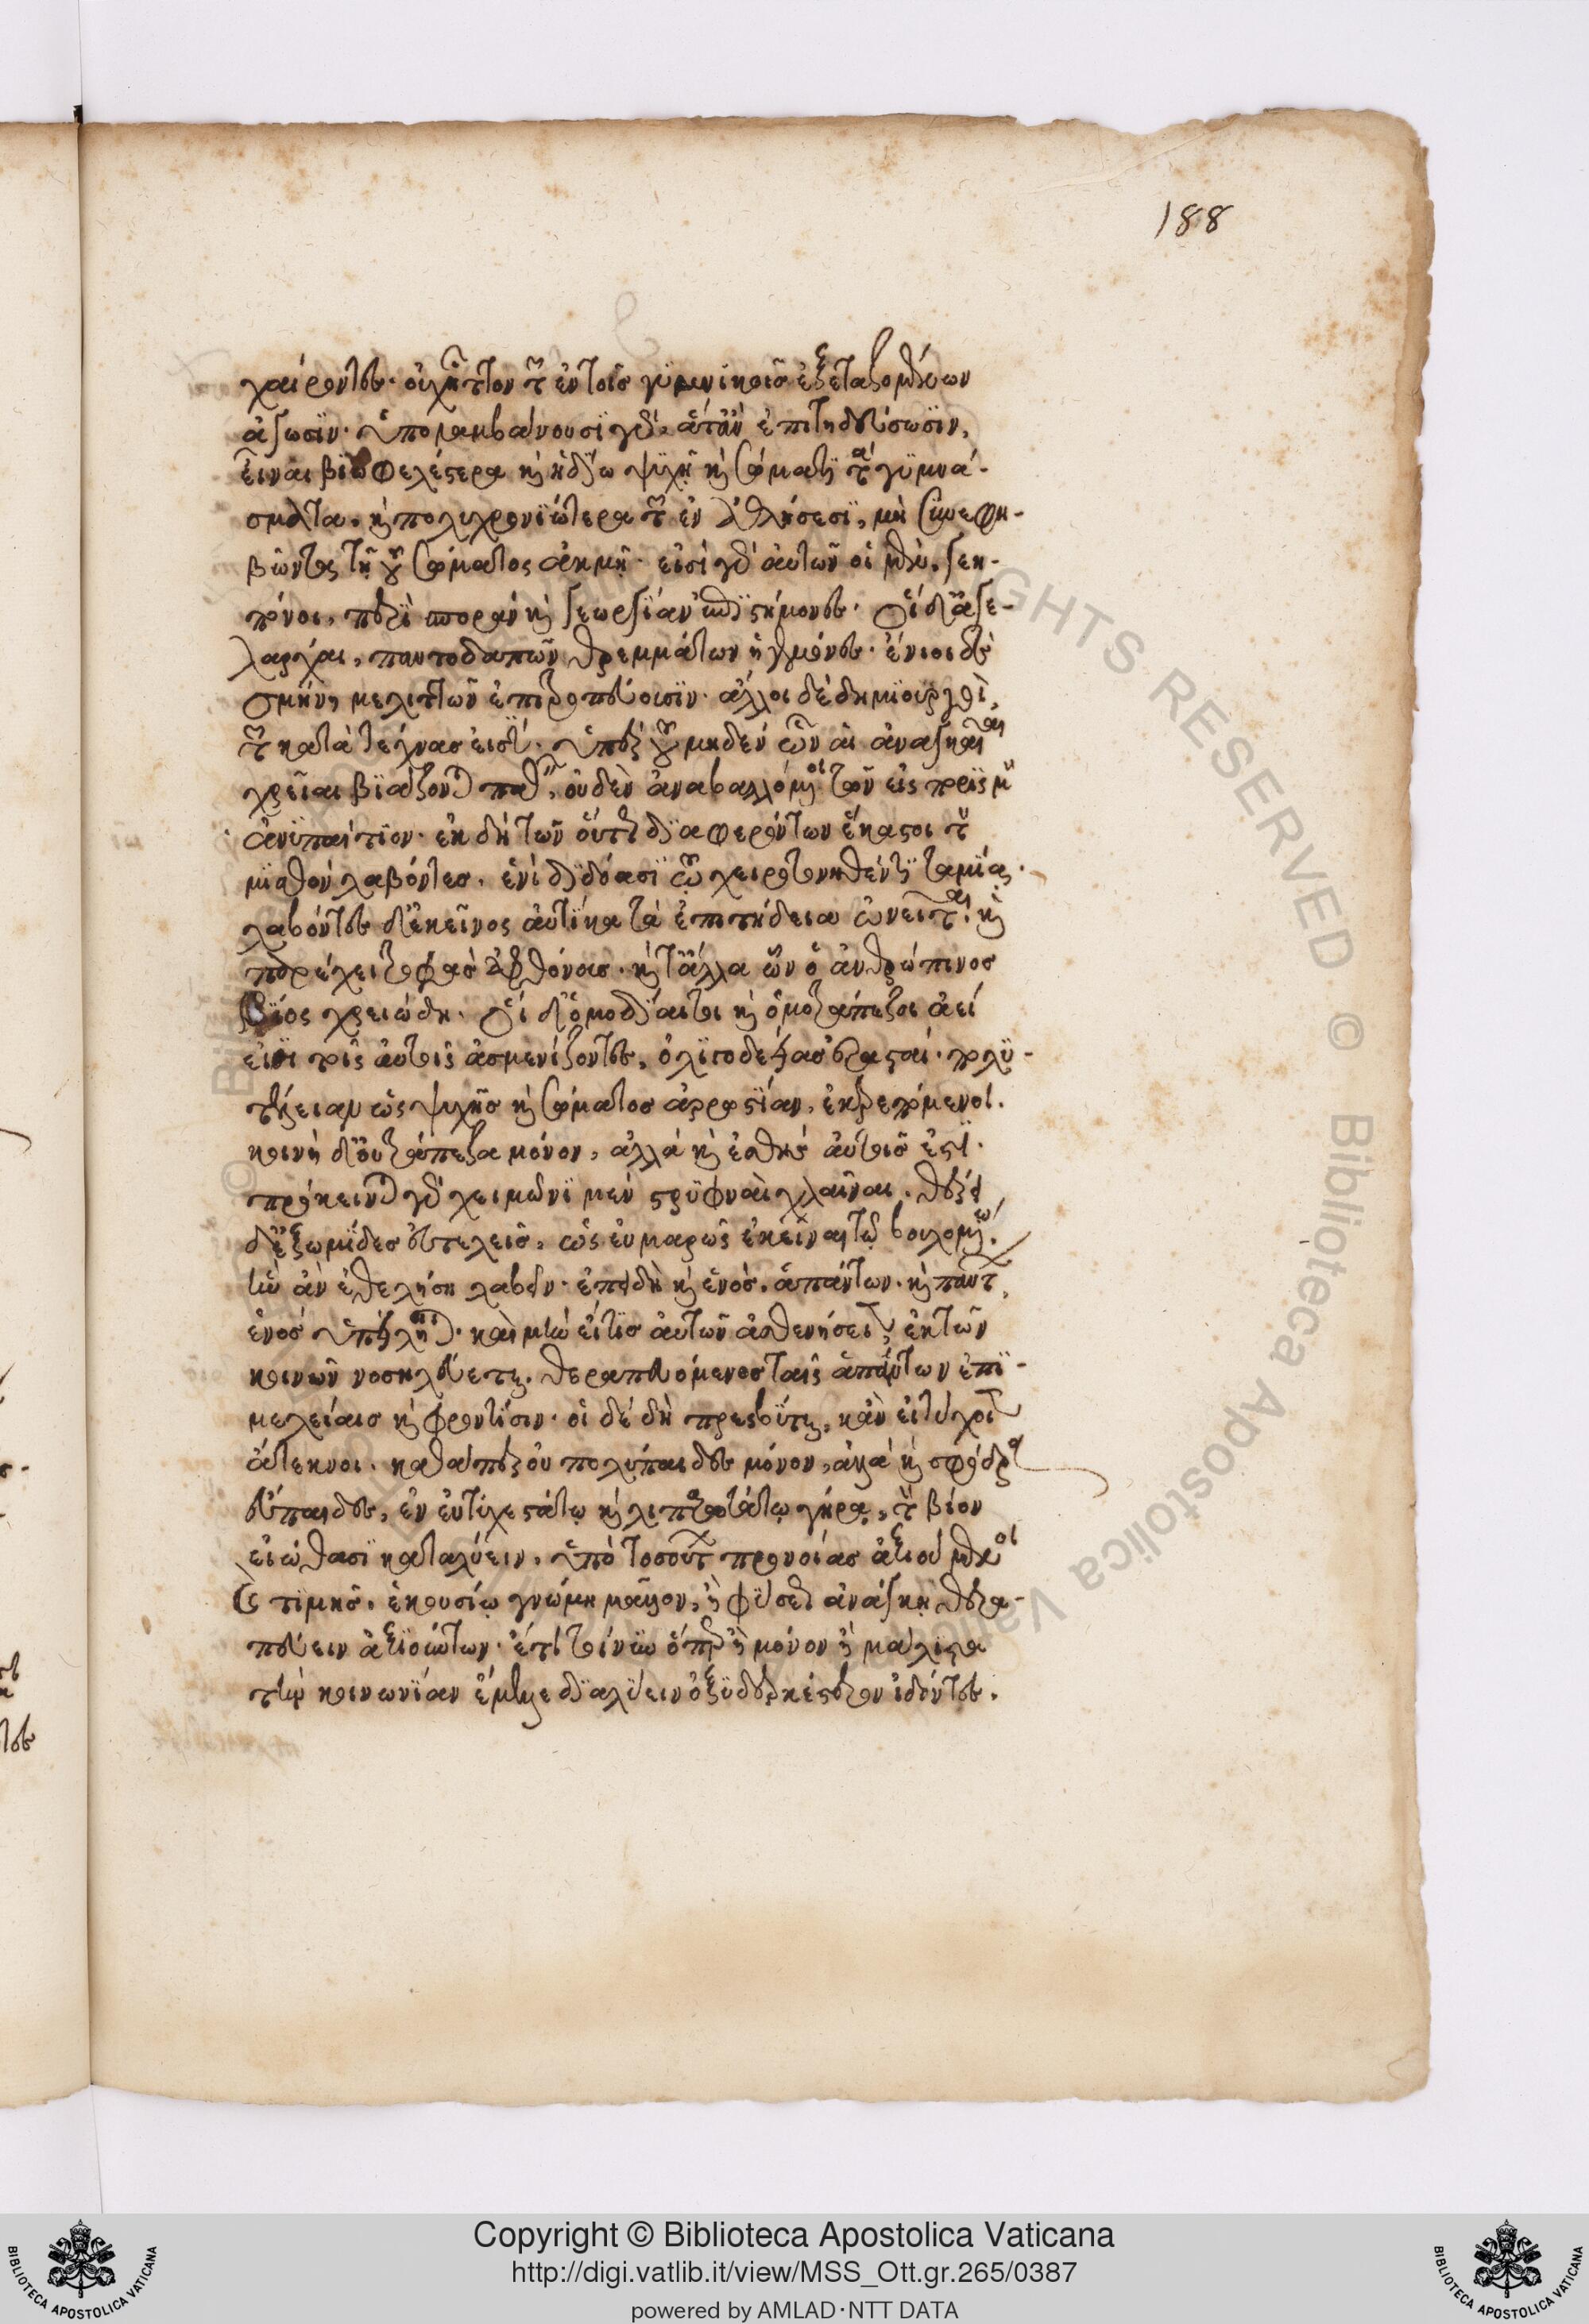 188
χαίροντες· οὐχ ἧττον τῶν ἐν τοῖς γυμνικοῖς ἐξεταζομένων
ἀγῶσιν· ὑπολαμβάνουσι γὰρ ἅττ' ἂν ἐπιτηδεύσωσιν,
εἶναι βιωφελέστερα καὶ ἡδίω ψυχῇ καὶ σώματι τὰ γυμνά-
σματα, καὶ πολυχρονιώτερα τῶν ἐν ἀθλήσεσι, μὴ συνεφη-
βῶντος τῇ τοῦ σώματος ἀκμῇ· εἰσὶ γὰρ αὐτῶν οἱ μὲν, γεη-
πόνοι, περὶ σπορὰν καὶ γεωργίαν ἐπιστήμονες· οἱ δ' ἀγε-
λάρχαι, παντοδαπῶν θρεμμάτων ἡγεμόνες· ἔνιοι δὲ
σμήνη μελιττῶν ἐπιτροπεύουσιν· ἄλλοι δὲ δημιουργοὶ,
τῶν κατὰ τέχνας εἰσί· ὑπὲρ τοῦ μηδὲν ὧν αἱ ἀναγκαῖαι
χρεῖαι βιάζονται παθεῖν, οὐδὲν ἀναβαλλόμενοι τῶν εἰς πορισμὸν
ἀνυπαίτιον· ἐκ δὴ τῶν οὕτως διαφερόντων ἕκαστοι τὸν
μισθὸν λαβόντες, ἑνὶ διδόασι τῷ χειροτονηθέντι ταμίᾳ·
λαβόντες δ' ἐκεῖνος αὐτίκα τὰ ἐπιτήδεια ὠνεῖται, καὶ
παρέχει τροφὰς ἀφθόνους· καὶ τἄλλα ὧν ὁ ἀνθρώπινος
βίος χρειώδη· οἱ δ' ὁμοδίαιτοι καὶ ὁμοτράπεζοι ἀεί
εἰσι τοῖς αὐτοῖς ἀσμενίζοντες, ὀλιγοδεΐας ἐρασταί· πολυ-
τέλειαν ὡς ψυχῆς καὶ σώματος ἀρρωστίαν, ἐκτρεπόμενοι.
κοινὴ δ' οὐ τράπεζα μόνον, ἀλλὰ καὶ ἐσθὴς αὐτοῖς ἐστι·
πρόκεινται γὰρ χειμῶνι μὲν στρυφναὶ χλαῖναι, θέρει
δ' ἐξωμίδες εὐτελεῖς, ὡς εὐμαρῶς ἐκεῖναι τῷ βουλομένῳ,
ἣν ἂν ἐθελήσῃ λαβεῖν· ἐπειδὴ καὶ ἑνὸς, ἁπάντων, καὶ πάντων,
ἑνὸς ὑπείληπται· καὶ μὴν εἴ τις αὐτῶν ἀσθενήσειεν, ἐκ τῶν
κοινῶν νοσηλεύεται, θεραπευόμενος ταῖς ἁπάντων ἐπι-
μελείαις καὶ φροντίσιν· οἱ δὲ δὴ πρεσβῦται, κἂν εἰ τύχοιεν
ἄτεκνοι, καθάπερ οὐ πολύπαιδες μόνον, ἀλλὰ καὶ σφόδρα
εὔπαιδες, ἐν εὐτυχεστάτῳ καὶ λιπαρωτάτῳ γήρᾳ, τὸν βίον
εἰώθασι καταλύειν, ὑπὸ τοσούτων προνοίας ἀξιούμενοι
καὶ τιμῆς, ἑκουσίῳ γνώμῃ μᾶλλον, ἢ φύσεως ἀνάγκῃ θερα-
πεύειν ἀξιούντων· ἔτι τοίνυν ὅπερ ἢ μόνον ἢ μάλιστα
τὴν κοινωνίαν ἔμελλε διαλύειν ὀξυδερκέστερον ἰδόντες,
Copyright © Biblioteca Apostolica Vaticana
http://digi.vatlib.it/view/MSS_Ott.gr.265/0387
powered by AMLAD·NTT DATA